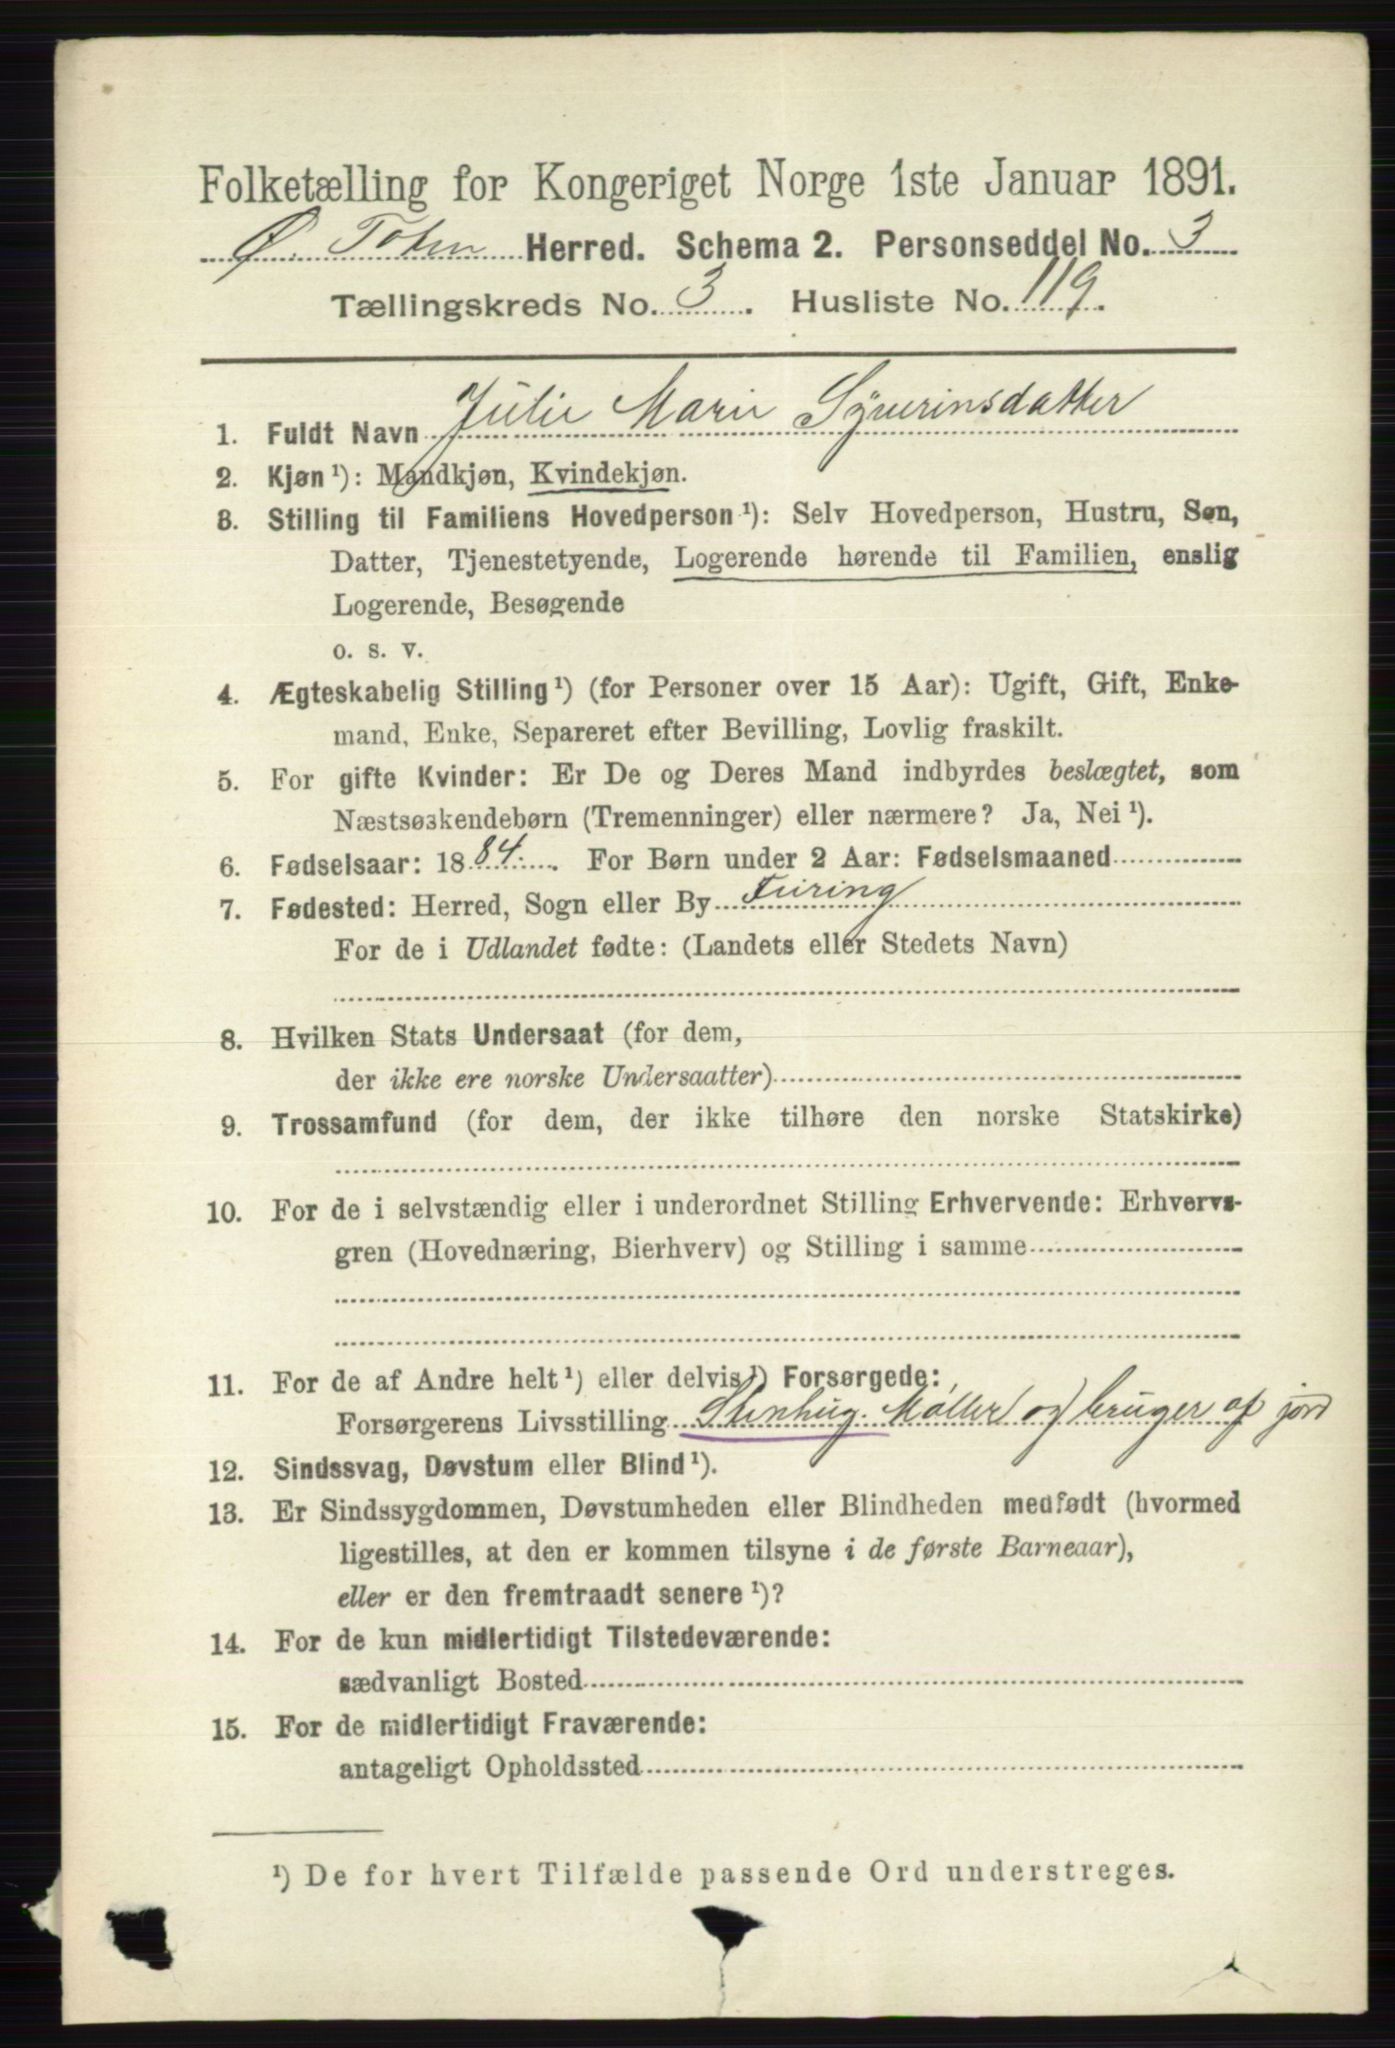 Folketælling for Kongeriget Norge 1ste Januar 1891.
Ø. Toten Herred. Schema 2. Personseddel No. 3
Tællingskreds No. 3. Husliste No. 119.
1. Fuldt Navn Julie Marie Syverinsdatter
2. Kjøn ¹): Mandkjøn, Kvindekjøn.
3. Stilling til Familiens Hovedperson ¹): Selv Hovedperson, Hustru, Søn,
Datter, Tjenestetyende, Logerende hørende til Familien, enslig
Logerende, Besøgende
o. s. v.
4. Ægteskabelig Stilling ¹) (for Personer over 15 Aar): Ugift, Gift, Enke-
mand, Enke, Separeret efter Bevilling, Lovlig fraskilt.
5. For gifte Kvinder: Er De og Deres Mand indbyrdes beslægtet, som
Næstsøskendebørn (Tremenninger) eller nærmere? Ja, Nei ¹).
6. Fødselsaar: 1884. For Børn under 2 Aar: Fødselsmaaned
7. Fødested: Herred, Sogn eller By Furing
For de i Udlandet fødte: (Landets eller Stedets Navn)
8. Hvilken Stats Undersaat (for dem,
der ikke ere norske Undersaatter)
9. Trossamfund (for dem, der ikke tilhøre den norske Statskirke)
10. For de i selvstændig eller i underordnet Stilling Erhvervende: Erhvervs-
gren (Hovednæring, Bierhverv) og Stilling i samme
11. For de af Andre helt ¹) eller delvis ¹) Forsørgede:
Forsørgerens Livsstilling Stenhug. Møller og bruger af jord
12. Sindssvag, Døvstum eller Blind ¹).
13. Er Sindssygdommen, Døvstumheden eller Blindheden medfødt (hvormed
ligestilles, at den er kommen tilsyne i de første Barneaar),
eller er den fremtraadt senere ¹)?
14. For de kun midlertidigt Tilstedeværende:
sædvanligt Bosted
15. For de midlertidigt Fraværende:
antageligt Opholdssted
¹) De for hvert Tilfælde passende Ord understreges.